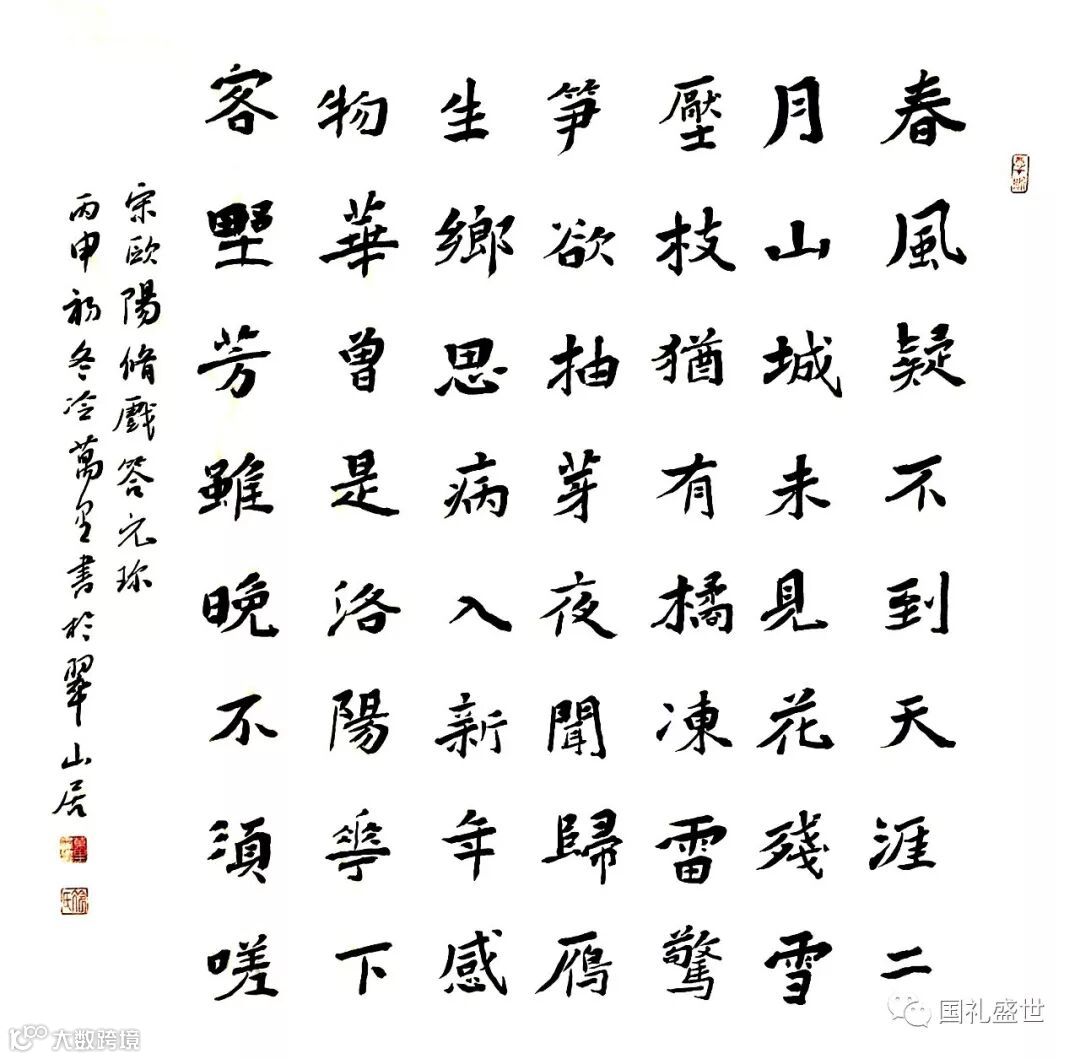 春風疑不到天涯二
月山城未見花殘雪
壓枝猶有橘凍雷驚
筍欲抽芽夜聞歸雁
生鄉思病入新年感
物華曾是洛陽花下
客野芳雖晚不須嗟
宋歐陽脩戲答元珍
丙申初冬冷萬里書於翠山居
国礼盛世
大数跨境